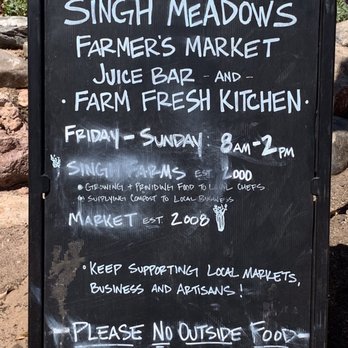 SINGH MEADOWS
FARMER'S MARKET
JUICE BAR - AND -
• FARM FRESH KITCHEN •
FRIDAY - SUNDAY: 8AM-2PM
SINGH FARMS EST 2000
• GROWING + PROVIDING FOOD TO LOCAL CHEFS
• SUPPLYING COMPOST TO LOCAL BUSINESS
MARKET EST 2008
• KEEP SUPPORTING LOCAL MARKETS,
BUSINESS AND ARTISANS!
- PLEASE NO OUTSIDE FOOD -